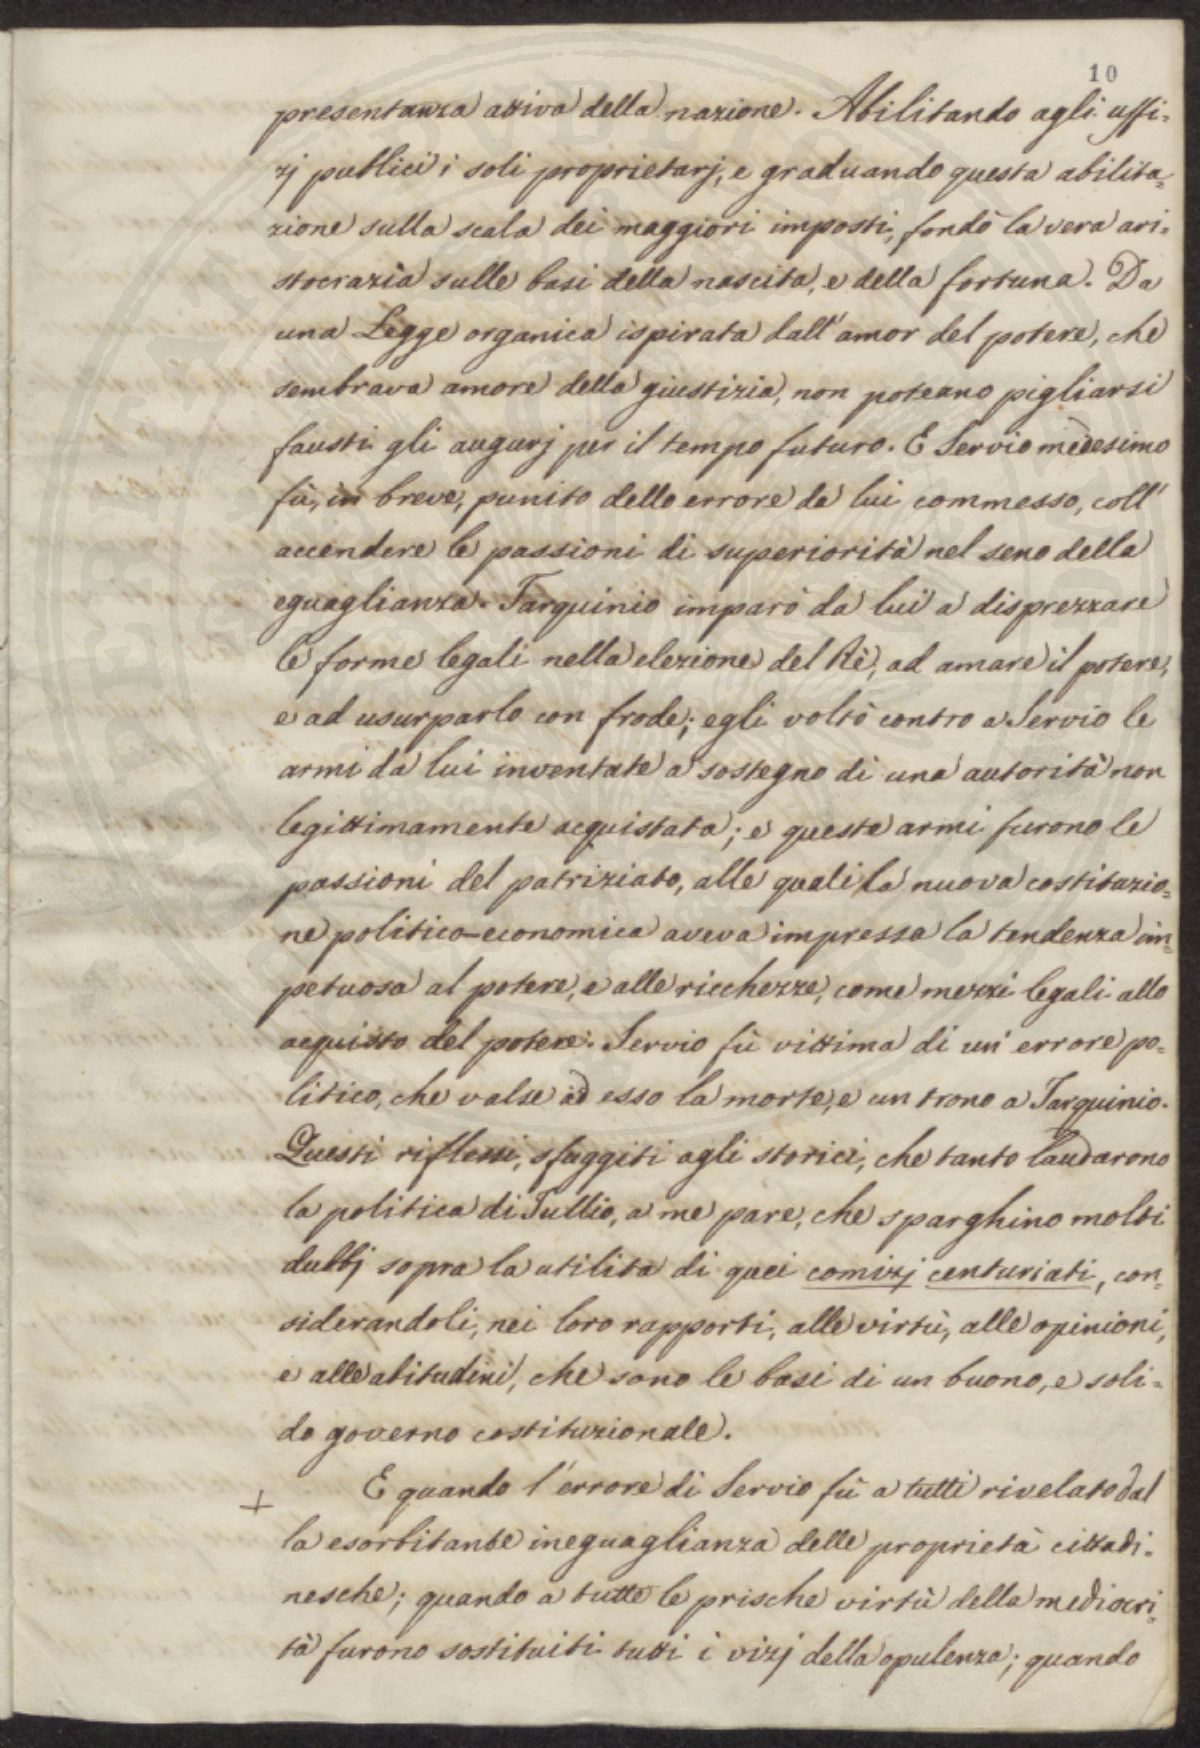 10
presentanza attiva della nazione. Abilitando agli uffi-
zj publici i soli proprietarj, e graduando questa abilita-
zione sulla scala dei maggiori imposti, fondò la vera ari-
stocrazia sulle basi della nascita, e della fortuna. Da
una Legge organica ispirata dall'amor del potere, che
sembrava amore della giustizia, non poteano pigliarsi
fausti gli augurj per il tempo futuro. E Servio medesimo
fù, in breve, punito dello errore da lui commesso, coll'
accendere le passioni di superiorità nel seno della
eguaglianza. Tarquinio imparò da lui a disprezzare
le forme legali nella elezione del Rè, ad amare il potere,
e ad usurparlo con frode; egli voltò contro a Servio le
armi da lui inventate a sostegno di una autorità non
legittimamente acquistata; e queste armi furono le
passioni del patriziato, alle quali la nuova costituzio-
ne politico-economica aveva impressa la tendenza im-
petuosa al potere, e alle ricchezze, come mezzi legali allo
acquisto del potere. Servio fù vittima di un' errore po-
litico, che valse ad esso la morte, e un trono a Tarquinio.
Questi riflessi, sfuggiti agli storici, che tanto laudarono
la politica di Tullio, a me pare, che sparghino molti
dubbj sopra la utilita di quei comizj centuriati, con-
siderandoli, nei loro rapporti, alle virtù, alle opinioni,
e alle abitudini, che sono le basi di un buono, e soli-
do governo costituzionale.
+ E quando l'errore di Servio fù a tutti rivelato dal
la esorbitante ineguaglianza delle proprietà cittadi-
nesche; quando a tutte le prische virtù della mediocri-
tà furono sostituiti tutti i vizj della opulenza; quando